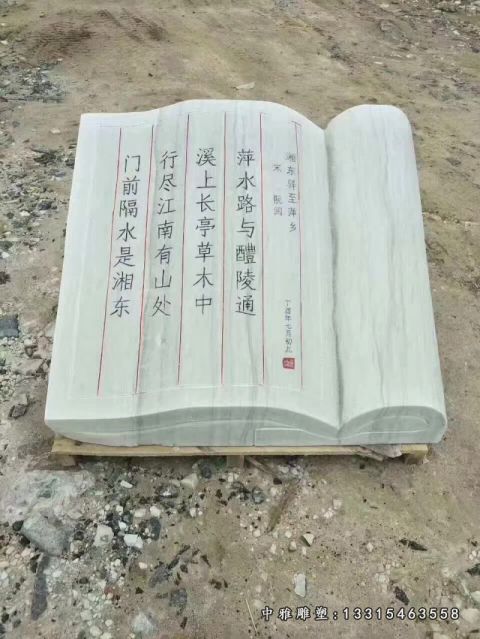 湘东驿至萍乡
宋 阮阅
萍水路与醴陵通
溪上长亭草木中
行尽江南有山处
门前隔水是湘东
丁酉年七月初九
中雅雕塑:13315463558